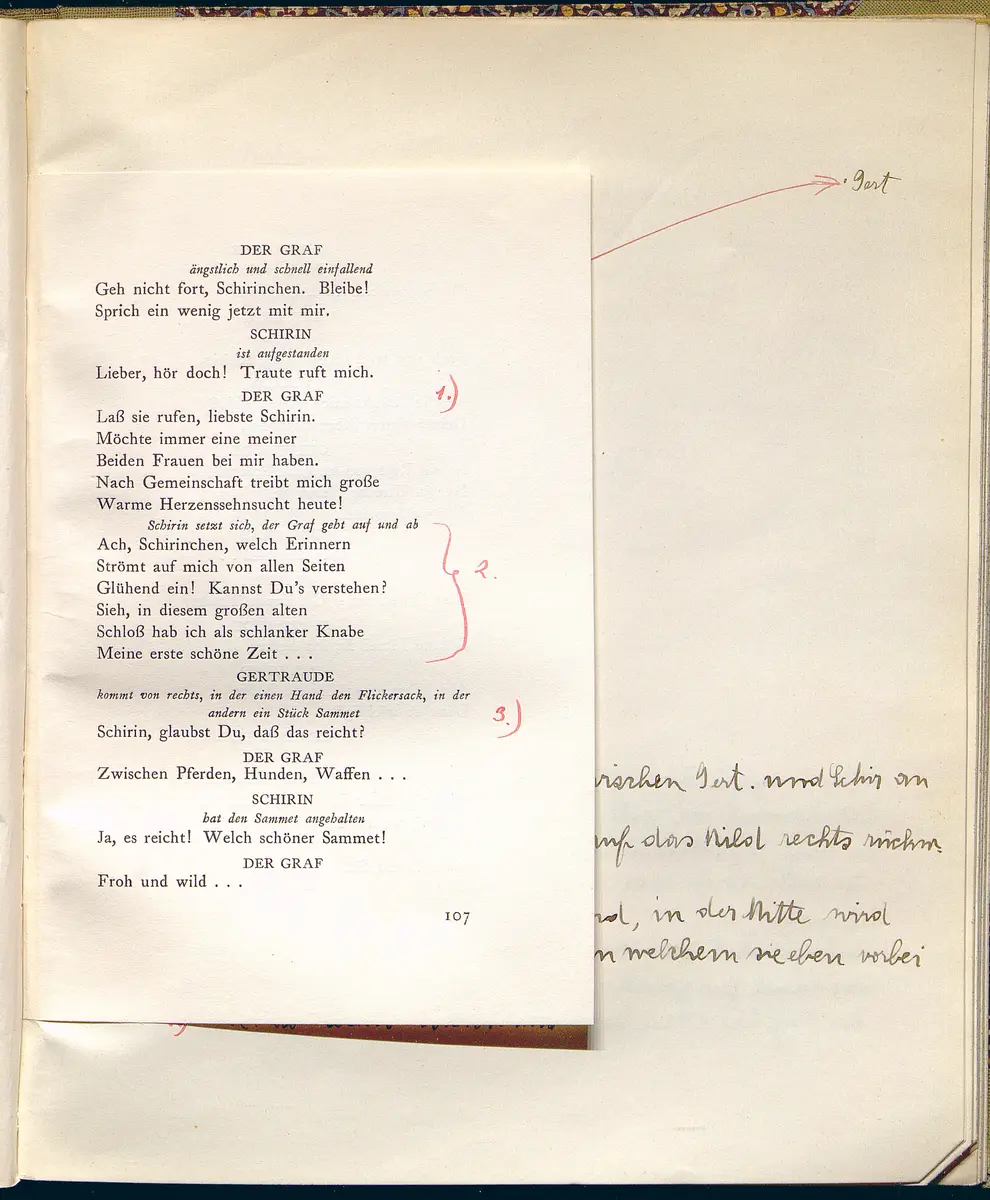 Gert
DER GRAF
ängstlich und schnell einfallend
Geh nicht fort, Schirinchen. Bleibe!
Sprich ein wenig jetzt mit mir.
SCHIRIN
ist aufgestanden
Lieber, hör doch! Traute ruft mich.
DER GRAF
1.)
Laß sie rufen, liebste Schirin.
Möchte immer eine meiner
Beiden Frauen bei mir haben.
Nach Gemeinschaft treibt mich große
Warme Herzenssehnsucht heute!
Schirin setzt sich, der Graf geht auf und ab
Ach, Schirinchen, welch Erinnern
Strömt auf mich von allen Seiten
2.
Glühend ein! Kannst Du's verstehen?
Sieh, in diesem großen alten
Schloß hab ich als schlanker Knabe
Meine erste schöne Zeit . . .
GERTRAUDE
kommt von rechts, in der einen Hand den Flickersack, in der
andern ein Stück Sammet
3.)
Schirin, glaubst Du, daß das reicht?
DER GRAF
Zwischen Pferden, Hunden, Waffen . . .
SCHIRIN
hat den Sammet angehalten
Ja, es reicht! Welch schöner Sammet!
DER GRAF
Froh und wild . . .
107
Gert. und Schir an
das Bild rechts
in der Mitte wird
welchem sie eben vorbei